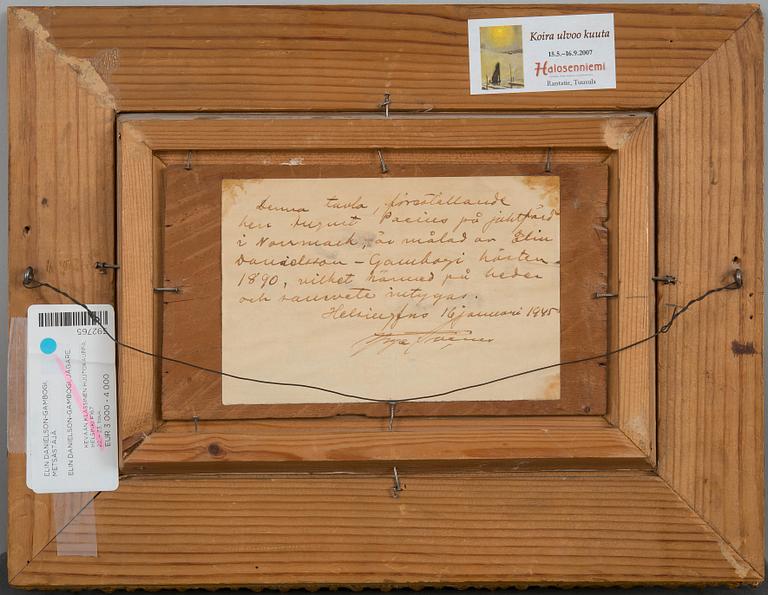 Koira ulvoo kuuta
15.5.–16.9.2007
Halosenniemi
Rantatie, Tuusula
Denna tavla, föreställande
herr August Pacius på jaktfärd
i Norrmark, är målad av Elin
Danielsson-Gambogi hösten
1890, vilket härmed på heder
och samvete intygas.
Helsingfors 16 januari 1945
592765
ELIN DANIELSON-GAMBOGI,
METSÄSTÄJÄ
ELIN DANIELSON-GAMBOGI, JÄGARE
KEVÄÄN KLASSINEN HUUTOKAUPPA,
HELSINKI F167
EUR 3 000 - 4 000